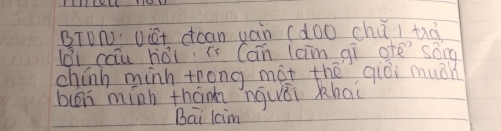 BTVN: Viết đoạn văn (200 chữ) trả
lời câu hỏi: "Cần làm gì để sống
chính mình trong một thế giới muốn
biến mình thành người khác
Bài làm